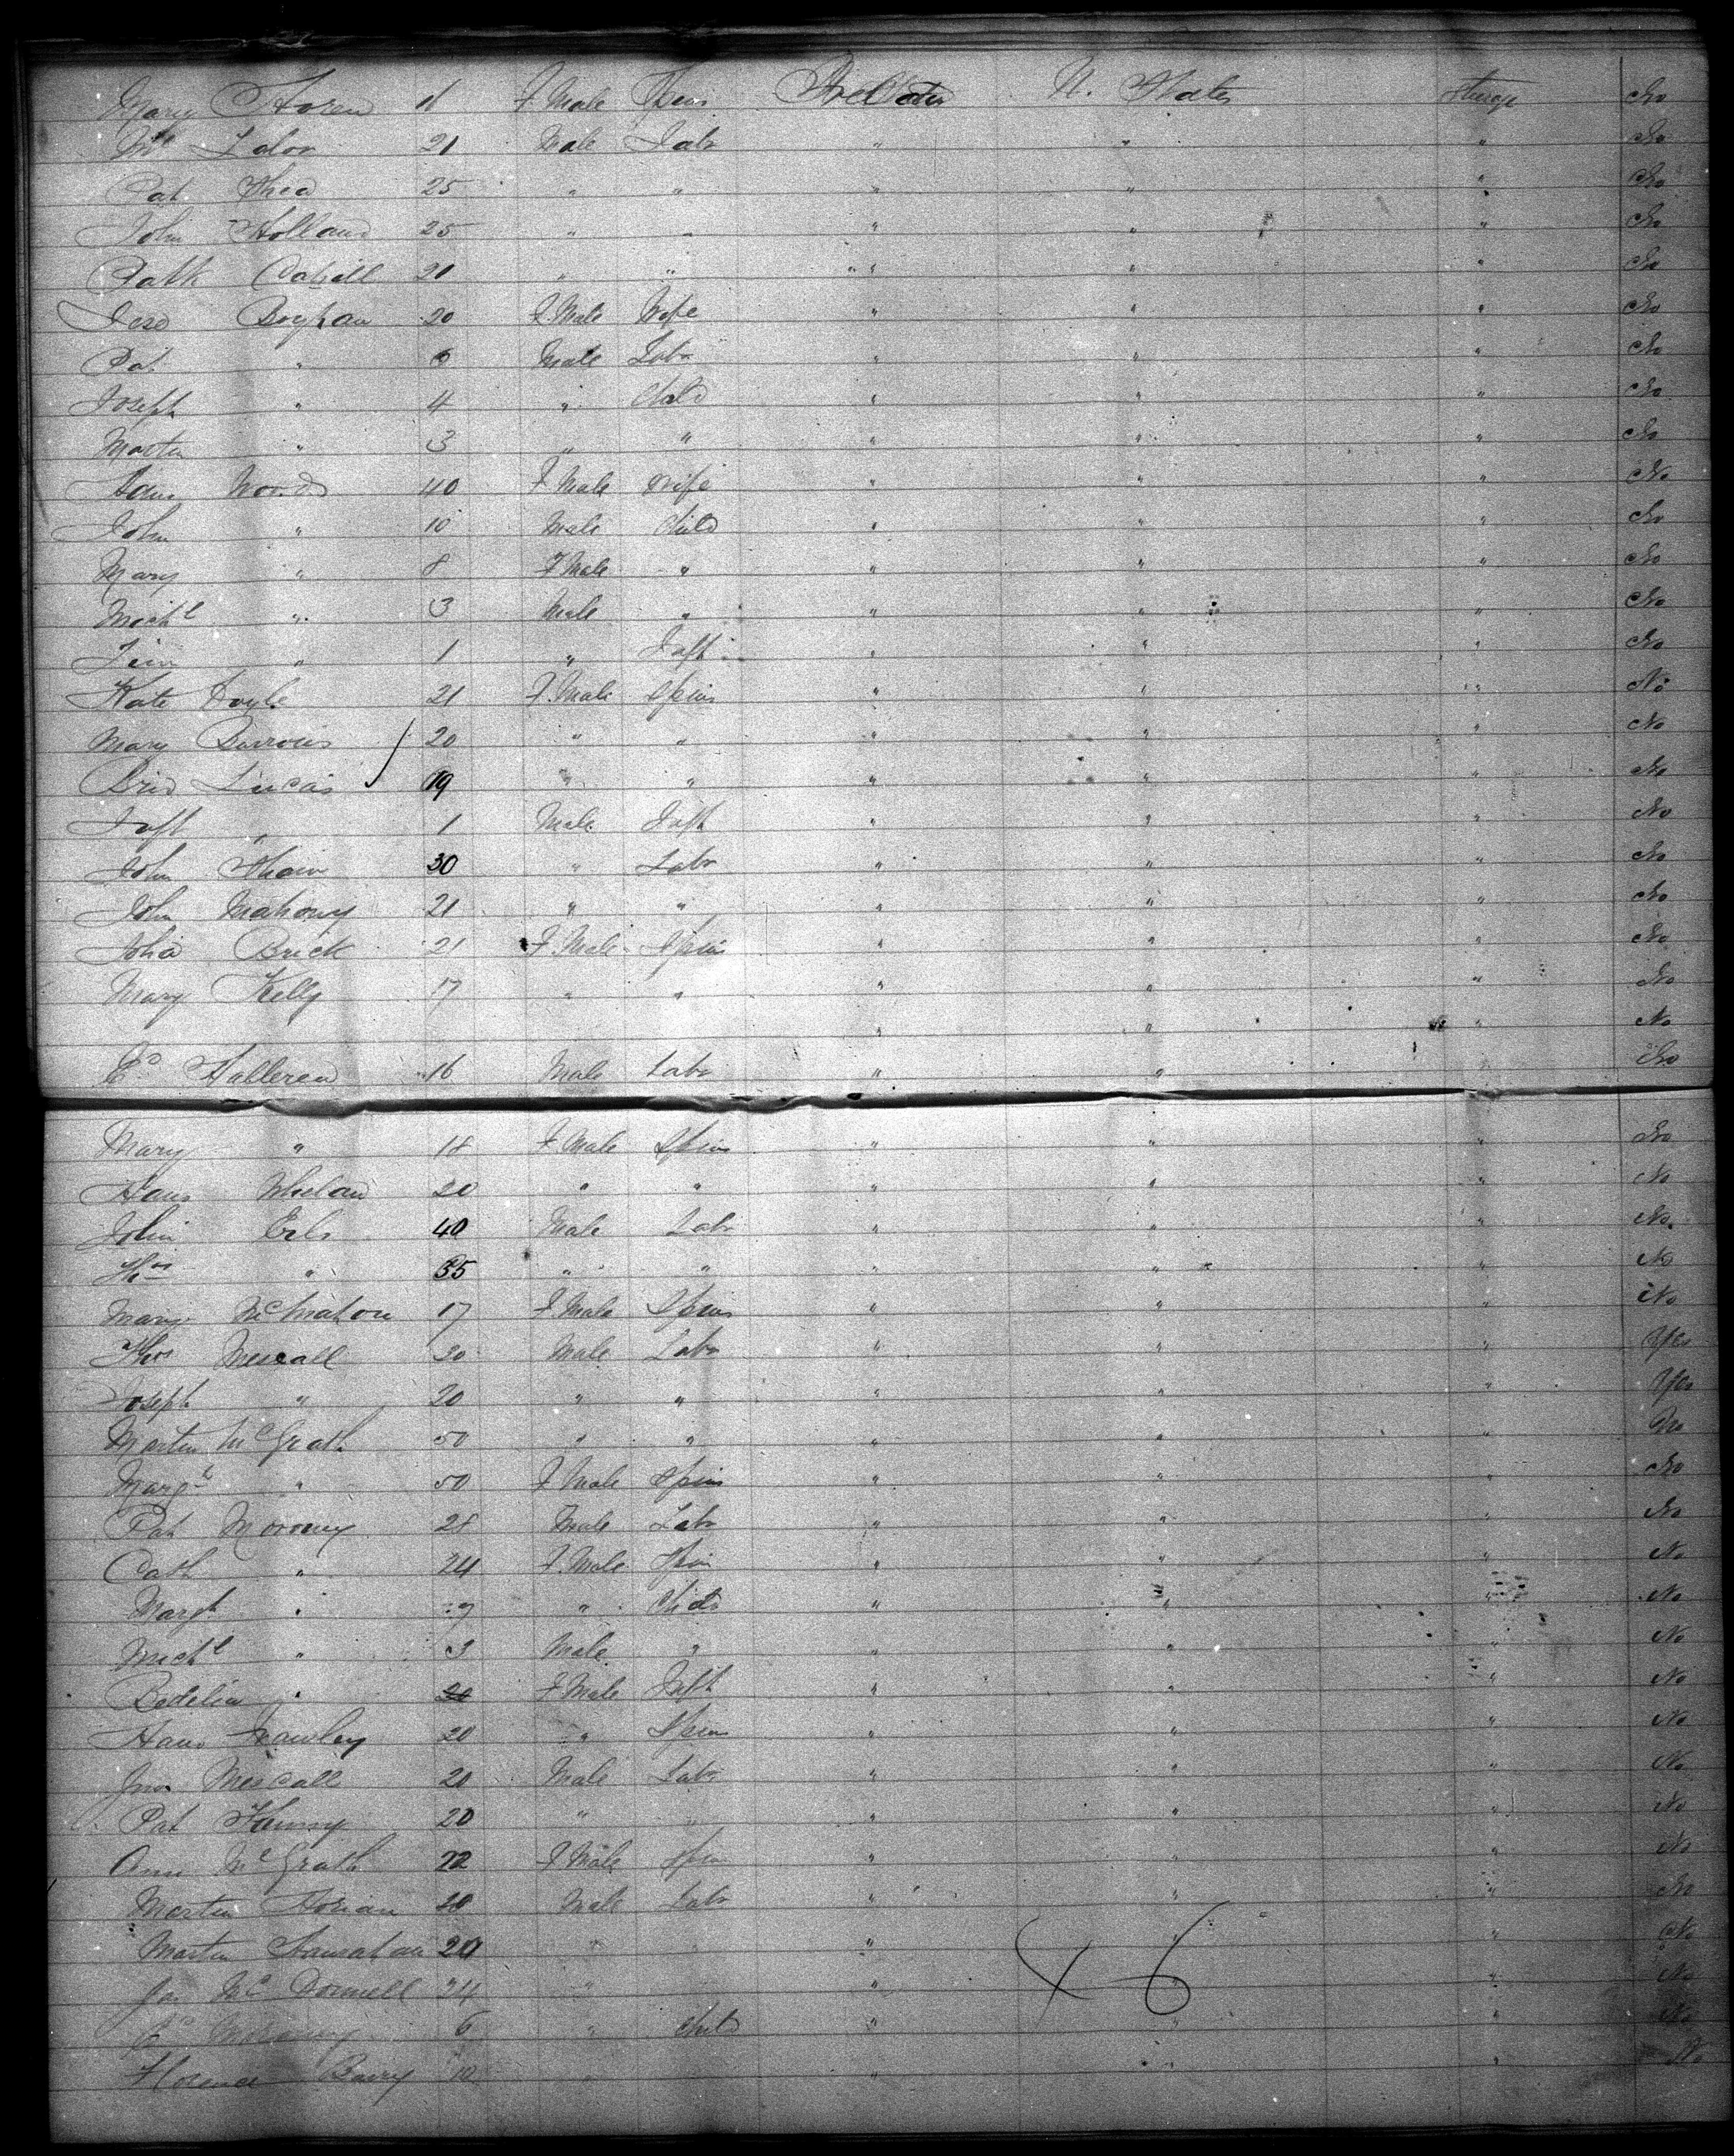 Mary Horen 16 F Male Spins Ireland U. States Steerage No
Ml Lalor 21 Male Labr " " " No
Pat Shea 25 " " " " " No
John Holland 25 " " " " " No
Patk Cahill 20 " " " " " No
Boyhan 20 F Male Wife " " " No
Pat " 6 Male Labr " " " No
Joseph " 4 " Child " " " No
Martin " 3 " " " " " No
Woods 40 F Male Wife " " " No
John " 10 Male Child " " " No
Mary " 8 F Male " " " " No
Michl " 3 Male " " " " No
Tim " 1 " Inft " " " No
Kate Doyle 21 F. Male Spins " " " No
Mary Burrows 20 " " " " " No
Brid Lucas 19 " " " " " No
Inft " 1 Male Inft " " " No
John 30 " Labr " " " No
John Mahony 21 " " " " " No
Brick 21 F. Male Spins " " " No
Mary Kelly 17 " " " " " No
" " " No
Halleren 16 Male Labr " " No
Mary " 18 F Male Spins " " " No
Hanr Whelan 20 " " " " " No
John 40 Male Labr " " " No
Thos " 35 " " " " " No
Mary McMahon 17 F Male Spins " " " No
Thos Mescall 20 Male Labr " " " Yes
Joseph " 20 " " " " " Yes
Martin McGrath 50 " " " " " No
Margt " 50 F Male Spins " " " No
Pat Moroney 28 Male Labr " " " No
Cath " 24 F. Male Spin " " " No
Margt " " Child " " " No
Michl " 3 Male " " " " No
Bedelia " F Male Inft " " " No
Hanr Frawley 20 " Spins " " " No
Jno Mescall 20 Male Labr " " " No
Pat 20 " " " " " No
Ann McGrath 22 F Male Spin " " " No
Martin Honan 20 Male Labr " " " No
Martin Hanrahan 20 " " " " No
Jas McDonnell 24 " " " " No
6 " Child " " " No
Florence Barry " " " No
X 6